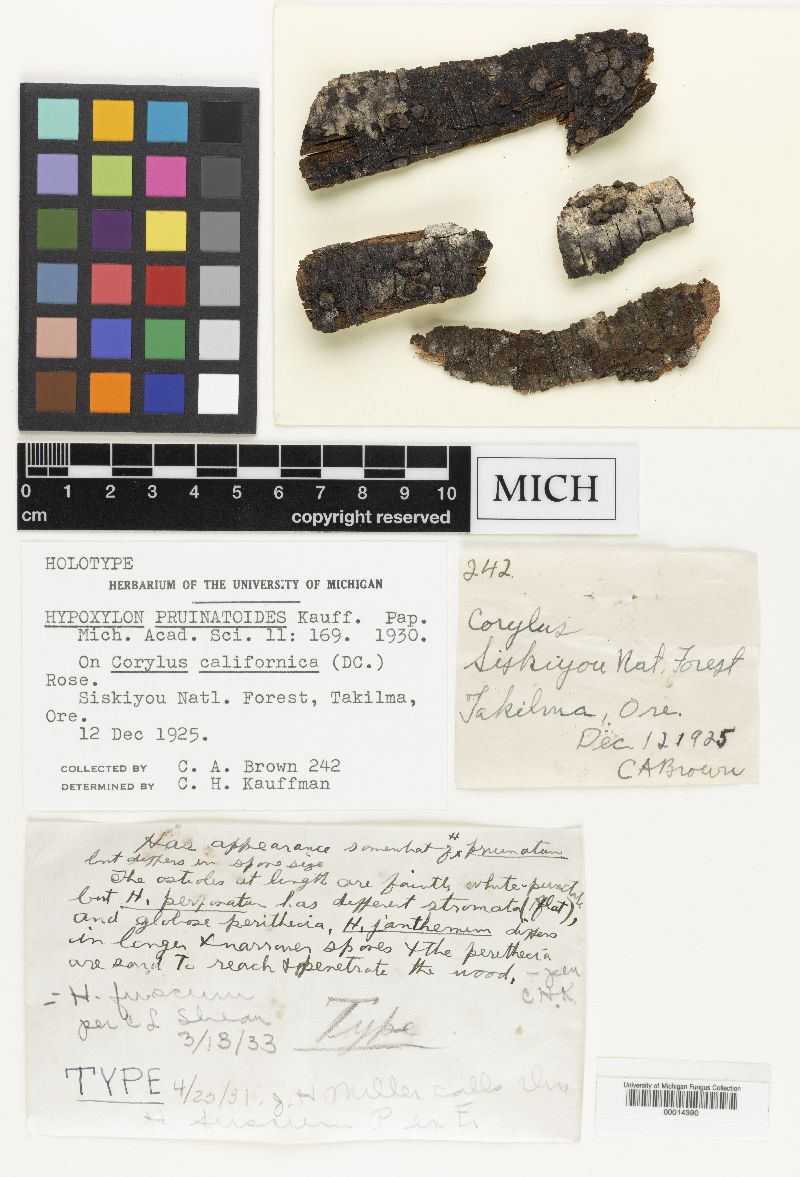 0 1 2 3 4 5 6 7 8 9 10
cm
copyright reserved
MICH
HOLOTYPE
HERBARIUM OF THE UNIVERSITY OF MICHIGAN
HYPOXYLON PRUINATOIDES Kauff. Pap.
Mich. Acad. Sci. 11: 169. 1930.
On Corylus californica (DC.)
Rose.
Siskiyou Natl. Forest, Takilma,
Ore.
12 Dec 1925.
COLLECTED BY C. A. Brown 242
DETERMINED BY C. H. Kauffman
242.
Corylus
Siskiyou Nat. Forest
Takilma, Ore.
Dec 12 1925
CABrown
Has appearance somewhat of H. pruinatum
but differs in spore size
The ostioles at length are faintly white-punctate
but H. perforatum has different stromata (flat),
and globose perithecia, H. janthemum differs
in longer & narrower spores & the perithecia
are said to reach & penetrate the wood,
C.H.K.
= H. fuscum
per C L Shear
3/13/33
Type
TYPE
4/20/31. J. H Miller calls this
H. fuscum P. ex Fr.
University of Michigan Fungus Collection
00014390